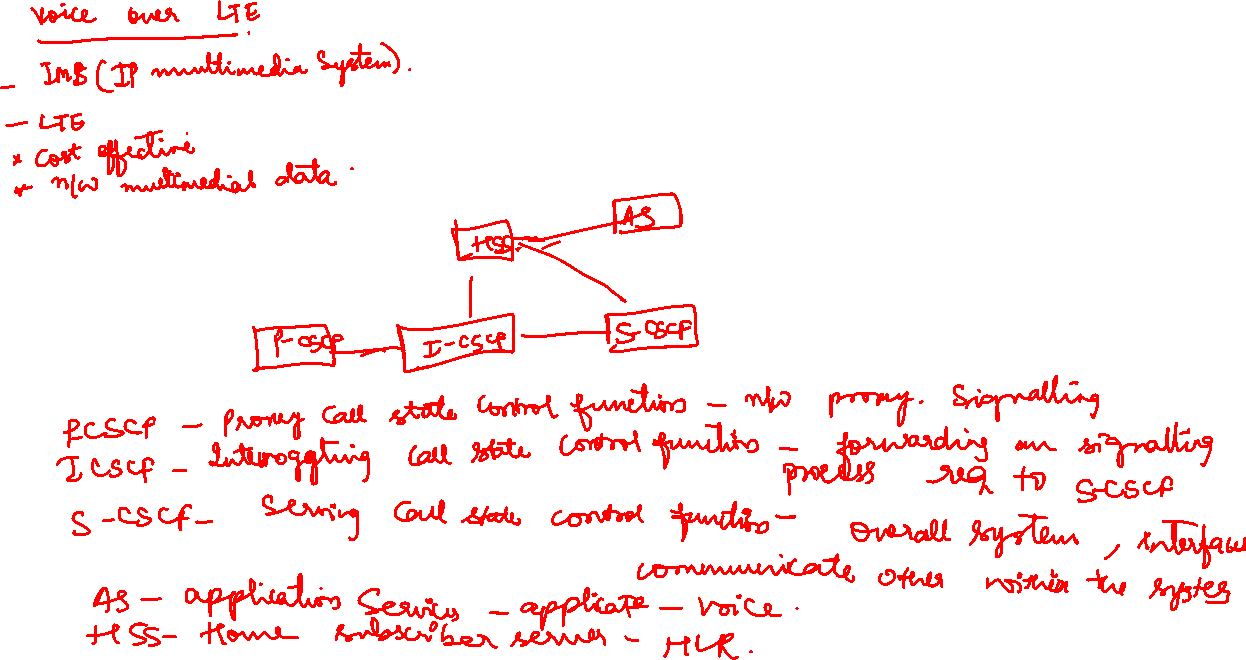 Voice over LTE
- IMS (IP multimedia System).
- LTE
* Cost effective
* n/w multimedial data.
AS
HSS
P-CSCF
I-CSCF
S-CSCF
PCSCF - Proxy Call state Control function - n/w proxy. Signalling
I CSCF - Interoggating Call State Control function - forwarding an signalling
process req to S-CSCF
S-CSCF - Serving Call state control function - Overall system, interface
communicate other within the system
AS - application Services - applicate - voice.
HSS - Home subscriber server - HLR.